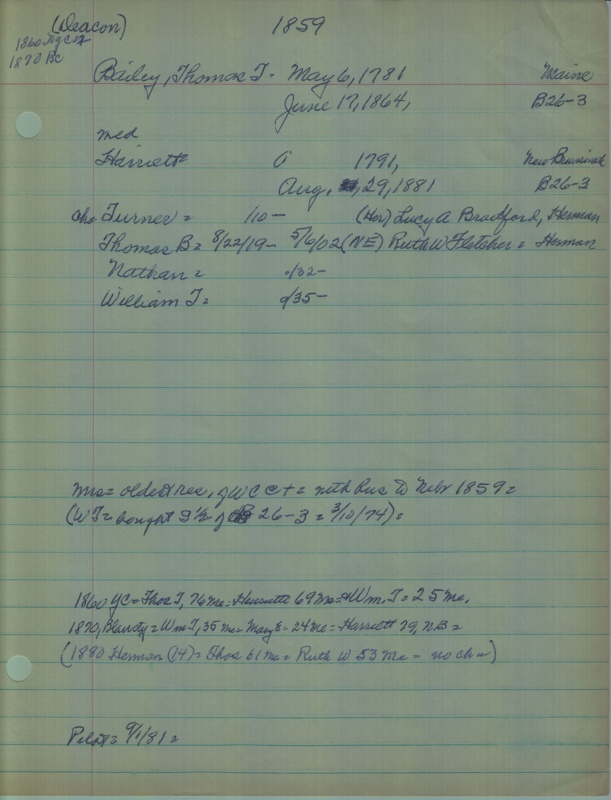 (Deacon) 1859
1860
1870 BC
Bailey, Thomas T. - May 6, 1781 Maine
June 17, 1864, B26-3
med
Harriett = 1791, New Brunswick
Aug. 29, 1881 B26-3
Turner = /10 - (Her) Lucy A Bradford, Herman
Thomas B = 8/22/19 - 5/6/02 (NE) Ruth W Fletcher = Herman
Nathan = /32 -
William T = /35 -
Mrs = oldest res, of WCC + = with Rus to Nebr 1859 =
(WT = bought S ½ of 26-3 = 3/10/74) =
1860 YC = Thos T, 76 Me = Harriett 69 Me = + Wm. T = 25 Me.
1870, Blandy = Wm T, 35 Me = Mary E = 24 Me = Harriett 79, NB =
(1880 Herman (14) = Thos 61 Me = Ruth W 53 Me - no ch =)
Pilot = 9/1/81 =